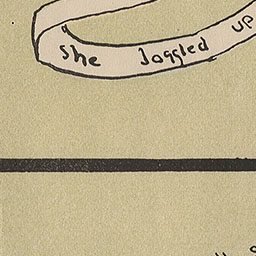 She Joggled up